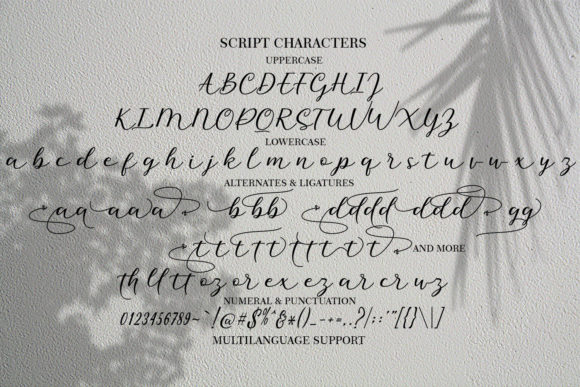 SCRIPT CHARACTERS
UPPERCASE
ABCDEFGHIJ
KLMNOPQRSTUVWXYZ
LOWERCASE
a b c d e f g h i j k l m n o p q r s t u v w x y z
ALTERNATES & LIGATURES
aa aaaa bbb dddd ddd gg
AND MORE
th ll tt oz or ex ez ar cr wz
NUMERAL & PUNCTUATION
0123456789~`!@#$%^&*()_-+=,.?/|:;'"[{}\|]
MULTILANGUAGE SUPPORT